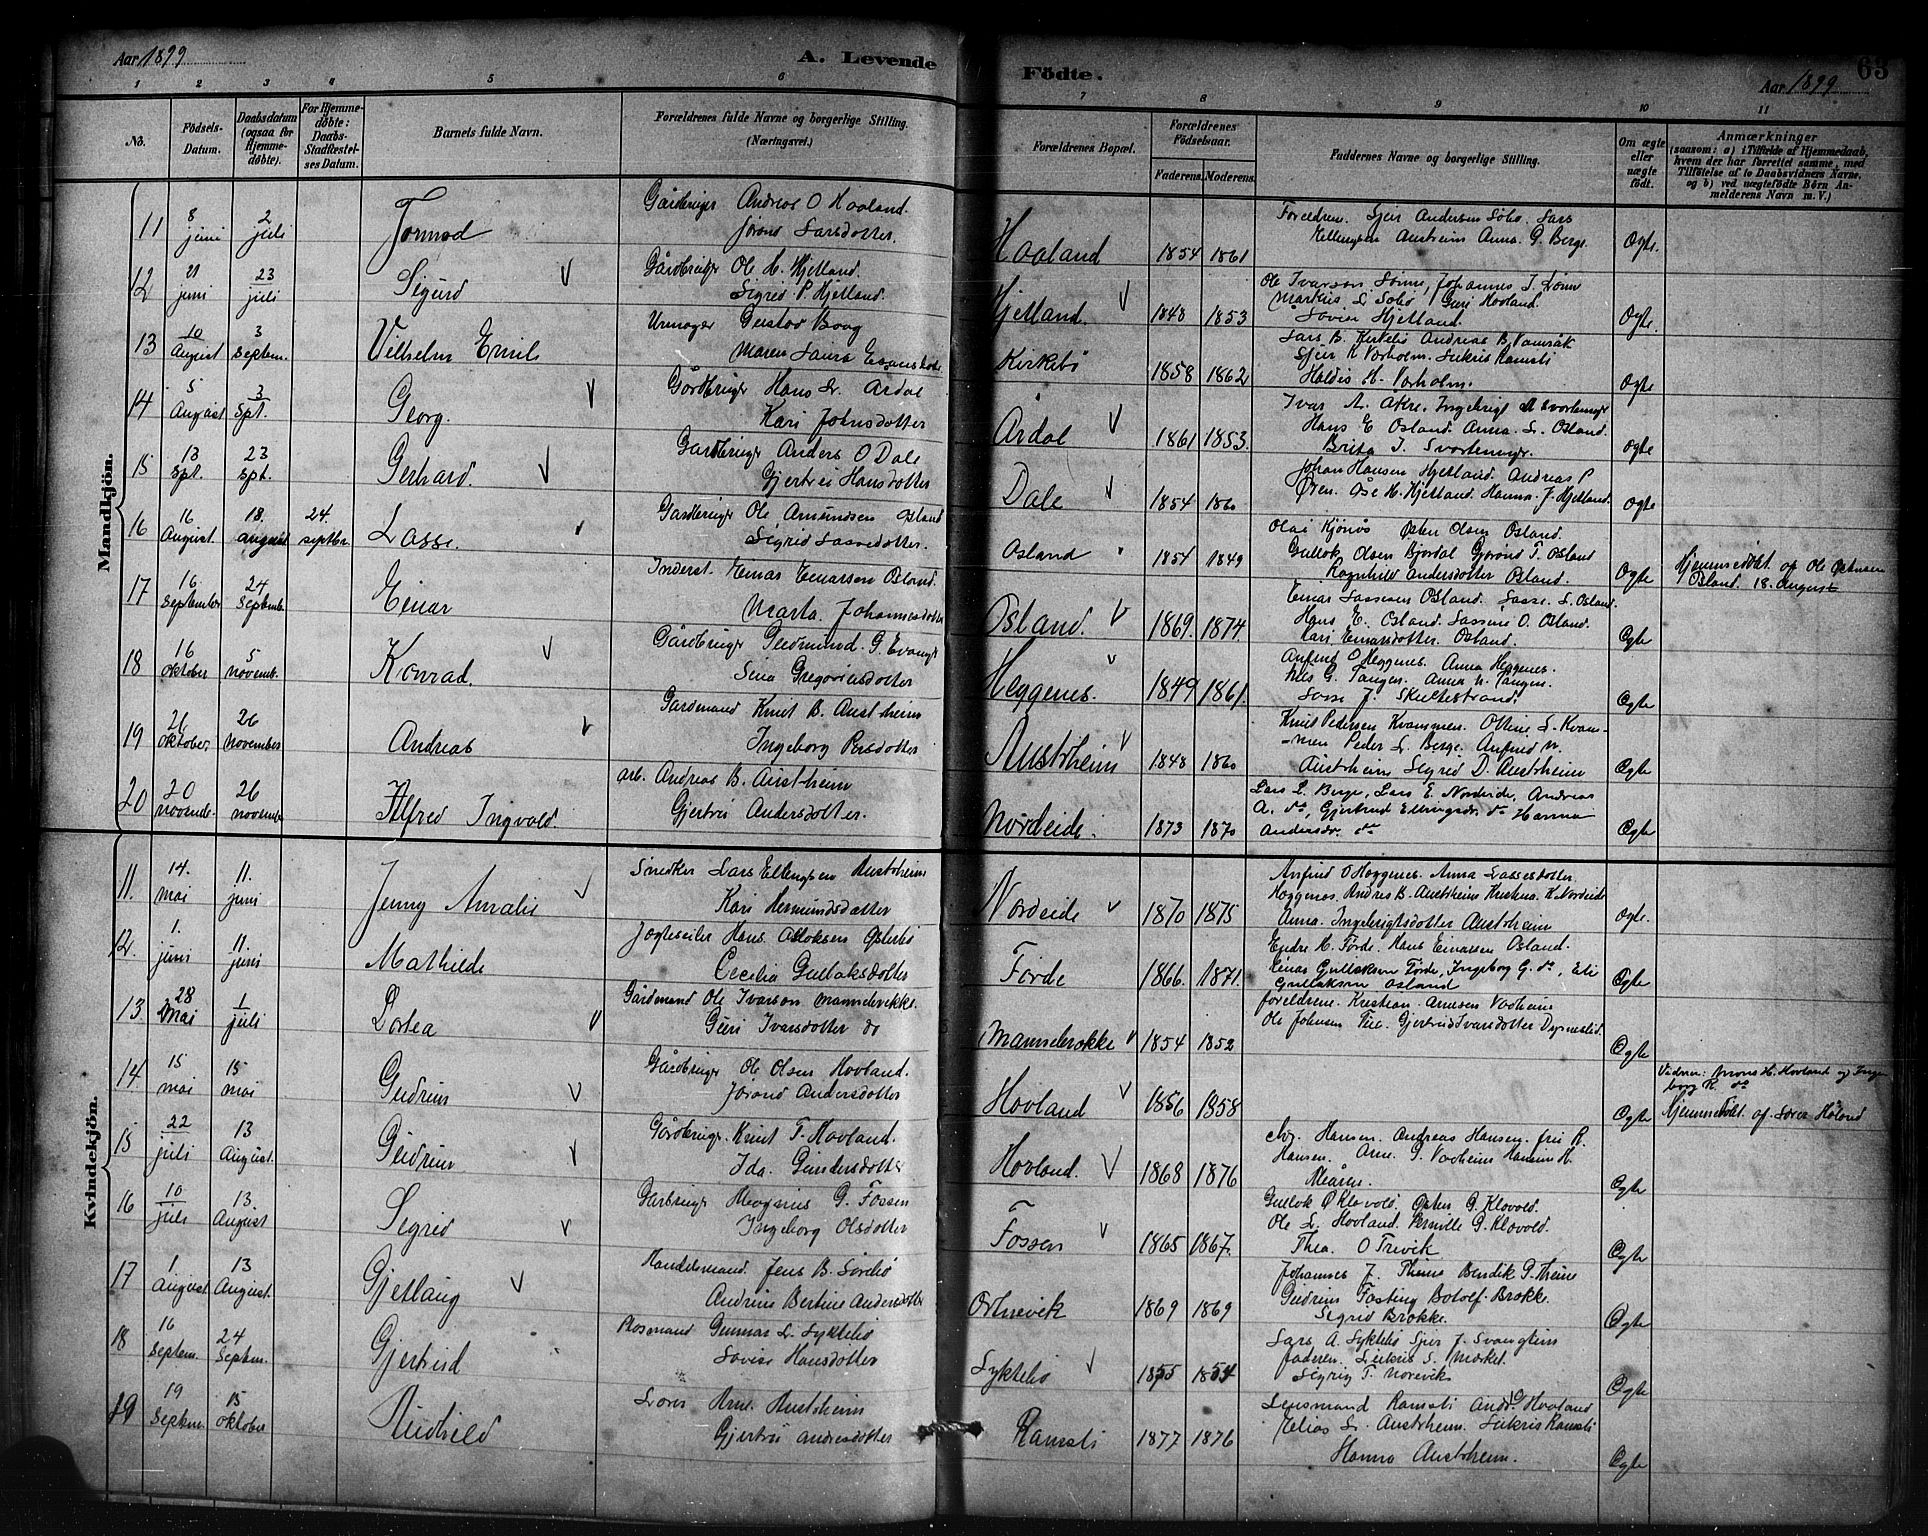 Aar 1899
A. Levende
Födte.
Aar 1899
63
1 2 3 4 5 6 7 8 9 10 11
No.
Födsels-
Datum.
Daabsdatum
(ogsaa for
Hjemme-
döbte).
For Hjemme-
döbte:
Daabs-
Stadfæstel-
ses Datum.
Barnets fulde Navn.
Forældrenes fulde Navne og borgerlige Stilling.
(Næringsvei.)
Forældrenes Bopæl.
Forældrenes
Födselsaar.
Faderens. Moderens.
Faddernes Navne og borgerlige Stilling.
Om ægte
eller
uægte
födt.
Anmærkninger
(saasom: a) i Tilfælde af Hjemmedaab,
hvem der har forrettet samme, med
Tilföielse af to Daabsvidners Navne.
og b) ved uægtefödte Börn An-
melderens Navn m. V.)
Mandkjön.
11 8 juni 2 juli Tormod
Gårdbruger Andreas O Hovland.
Jorand Larsdotter.
Hovland 1854 1861
Forældrene. Sjur Andersen Sobo. Lars
Ellingsen Austreim Anna. G. Berge. Ægte.
12 21 juni 23 juli Sigurd
Gårdbruger Ole H. Hjetland.
Sigrid P. Hjetland.
Hjetland. 1848 1853
Ole Ivarson Johannes J.
Markus L Sobö Guri Hovland.
Hjetland. Ægte.
13 10 August 3 Septem. Vilhelm Emil
Urmager Gustav Boag
Maren Laura
Kirkebö 1858 1862
Lars B. Kirkebö Andreas B. Vamråk
Sjur K Varholm. Sukris Ramsli
Haldis H. Varholm. Ægte
14 5 August 3 Spt. Georg.
Gårdbruger Hans L. Ardal
Kari Johnsdotter
Årdal 1861 1853.
Ivar A. Åkre. Ingebrigt A Svortemyr
Hans E Osland. Anna. L. Osland.
Brita I. Svortemyr. Ægte
15 13 Spt. 23 Spt. Gerhard.
Gårdbruger Anders O Dale
Gjertrui Hansdotter
Dale 1854 1860
Johan Hansen Hjetland. Andreas P
Øren. Åse H. Hjetland. Hanna J. Hjetland. Ægte
16 16 August. 18. august 24. septbr. Lasse.
Gårdbruger Ole Amundsen Osland
Sigrid Lassedotter.
Osland 1854 1849
Olai Kjönös Østen Olsen Osland.
Gullak Olsen Bjordal Gjorond T. Osland
Ragnhild Andersdotter Osland. Ægte
Hjemmedöbt af Ole Østensen
Osland. 18. August
17 16 September 24 Septemb. Einar
Inderst. Einar Einarsen Osland.
Marta Johannesdotter
Osland. 1869. 1874
Einar Lassesen Osland. Lasse. L. Osland.
Hans E. Osland. Lassine O. Osland.
Kari Einarsdotter. Osland. Ægte
18 16 Oktober 5 novemb. Konrad.
Gårdbruger Gudmund. G. Evanger
Sina Gregoriusdotter
Heggenes. 1849 1861.
Anfind O Heggenes. Anna Heggenes.
Nils G. Tangen. Anna N. Tangen.
J. Skultestrand. Ægte
19 26 Oktober. 26 November Andreas
Gardmand Knut B. Austrheim
Ingeborg Persdotter
Austrheim 1848 1860
Knut Pedersen Kvammen. Oline L. Kvam-
men Peder L. Berge. Anfind N.
Austrheim Sigrid D. Austrheim Ægte
20 20 novemb. 26 novemb Alfred Ingvald
arb. Andreas B. Austrheim
Gjertrui Andersdotter.
Nordeide. 1873 1870
Lars L. Berge, Lars E. Nordeide, Andreas
A. do, Gjertrud Ellingsdr. do Hanna
Andersdr. do Ægte
Kvindekjön.
11. 14. mai 11. juni Jenny Amalie
Snedker Lars Ellingsen Austrheim
Kari Hermundsdatter
Nordeide 1870 1875
Anfind O Heggenes. Anna Lassesdotter.
Heggenes. Andreas B. Austrheim Kristina K. Nordeide
Anna. Ingebrigtsdotter Austrheim Ægte.
12. 1. juni 11. juni Mathilde
Jagteseiler Hans Osterbö
Cecilia Gullaksdotter
Förde 1866. 1871.
Endre H. Förde. Hans Einarsen Osland.
Einar Gullaksen Förde, Ingeborg G. do, Eli
Gullaksen Osland Ægte
13. 28 Mai 1 juli Lovea
Gårdmand Ole Ivarson
Guri Ivarsdotter do
1854 1852
foreldrene. Kristian. Arnesen Vadheim
Ole Johnsen Gjertrud Ivarsdotter Ægte
14. 15 mai 15 mai Gudrun
Gårdbruger Ole Olsen Hovland.
Jorand Andersdotter
Hovland 1856 1858 Ægte
Vidner: Mons H. Hovland og Inge-
borg R. do
Hjemmedöbt. af Hovland
15 22 juli 13 August. Gudrun
Gårdbruger Knut T. Hovland.
Ida. Gundersdotter
Hovland. 1868 1876
Hansen. Andreas Hansen. fru R.
Hansen. Arne. G. Vadheim Hansine H.
Ægte
16 10 juli 13 August Sigrid
Gårbruger Magnus G. Fossen
Ingeborg Olsdotter
Fossen 1865 1867.
Gullak O Klævold. Østen G. Klovold.
Ole L. Hovland. Pernille G. Klovold.
Thea. O Trevik Ægte
17 1. August. 13 August. Gjetlaug
Handelsmand. Jens B. Sörebö
Andrine Bertine Andersdotter
Ortnevik 1869 1869
Johannes J. Bendik
Gudrun Fasting Botolf. Brekke.
Sigrid Brekke. Ægte
18 16 Septem. 24 Septem. Gjertrud
Gunnar L. Lyktebö
Lovise Hansdotter
Lyktebö 1855 1854
Lars A. Lyktebö Sjur J.
faderen. Sukris S.
Sigrig T. Ægte
19 19 Septem. 15 Oktober Audhild
Arne Austrheim
Gjertrui Andreasdotter
Ramsli 1877 1876
Lensmand Ramsli And. O Hovland
Elias L. Austrheim. Sukris Ramsli
Hanna Austrheim. Ægte